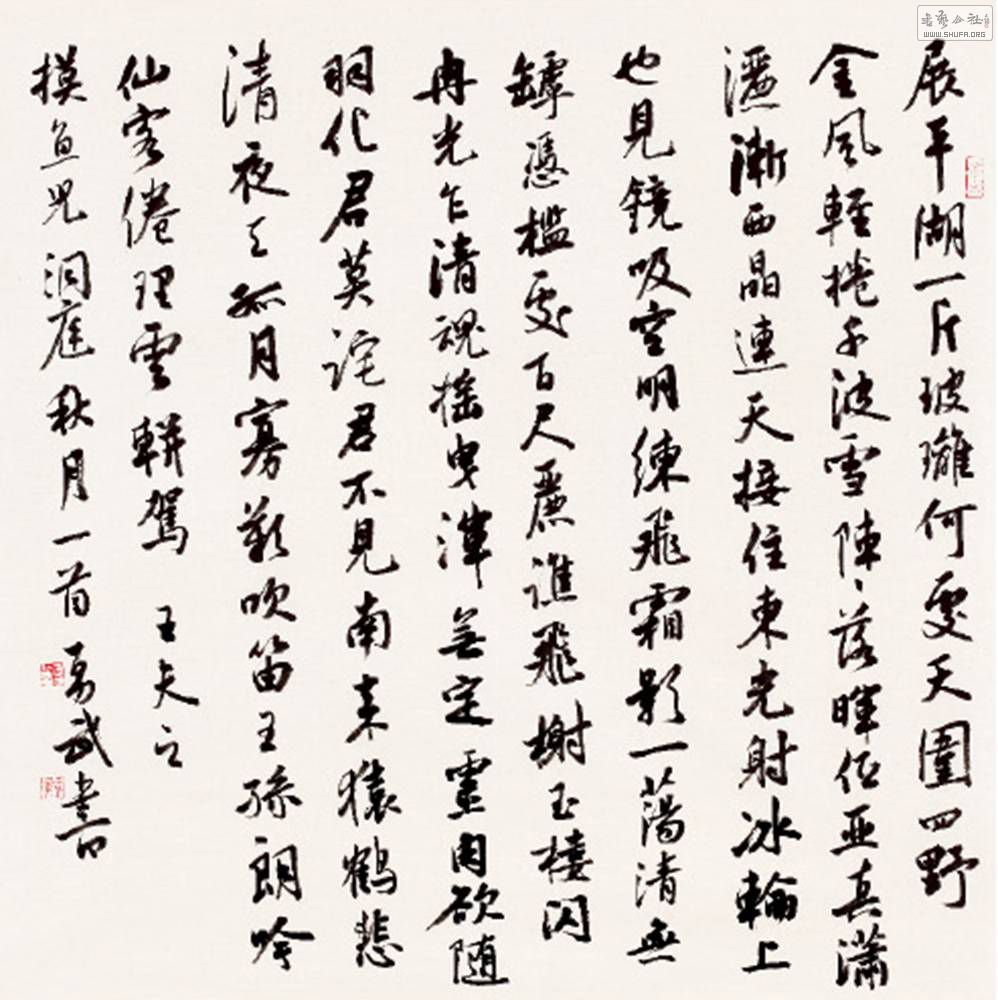 展平湖一片玻璃何處天圍四野
金風輕捲千波雪陣陣落暉低亞真瀟
灑漸西晶連天接住東光射冰輪上
也見鏡吸空明練飛霜影一蕩清無
罅憑檻處百尺麗譙飛榭玉樓閃
冉光乍清魂搖曳渾無定靈肉欲隨
羽化君莫詫君不見南來猿鶴悲
清夜天孤月寡歎吹笛王孫朗吟
仙客倦理雲軿駕 王夫之
摸魚兒洞庭秋月一首 易武書
書藝公社
WWW.SHUFA.ORG